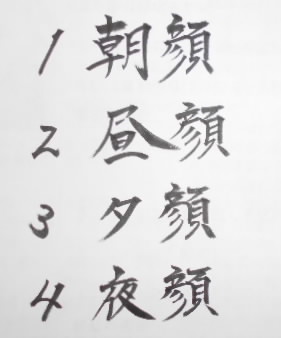 1 朝顔
2 昼顔
3 夕顔
4 夜顔